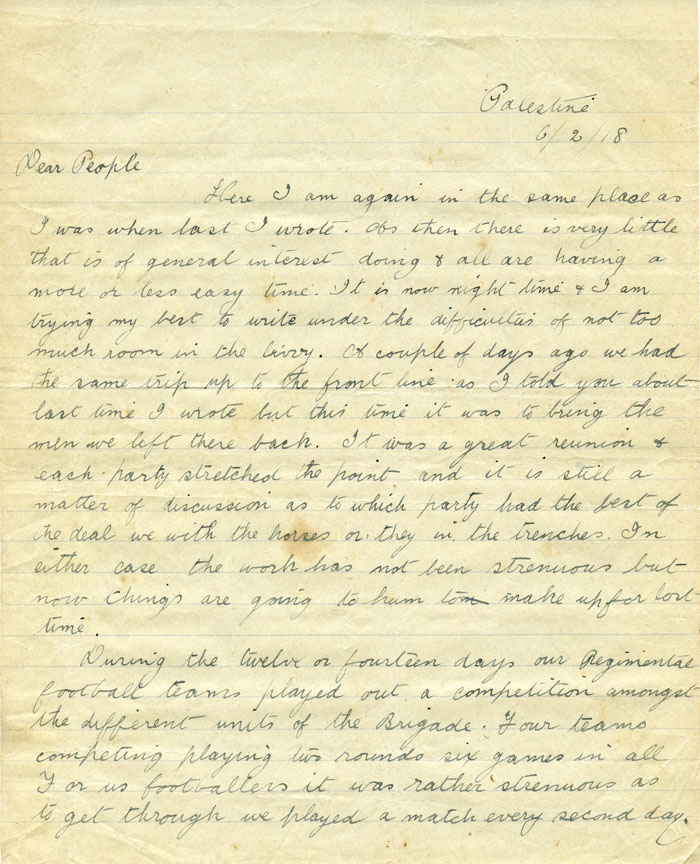 Palestine
6/2/18
Dear People
Here I am again in the same place as
I was when last I wrote. As then there is very little
that is of general interest doing & all are having a
more or less easy time. It is now night time & I am
trying my best to write under the difficulties of not too
much room in the bivvy. A couple of days ago we had
the same trip up to the front line as I told you about
last time I wrote but this time it was to bring the
men we left there back. It was a great reunion &
each party stretched the point and it is still a
matter of discussion as to which party had the best of
the deal we with the horses or they in the trenches. In
either case the work has not been strenuous but
now things are going to hum to make up for lost
time.
During the twelve or fourteen days our Regimental
football teams played out a competition amongst
the different units of the Brigade. Four teams
competing playing two rounds six games in all
For us footballers it was rather strenuous as
to get through we played a match every second day.